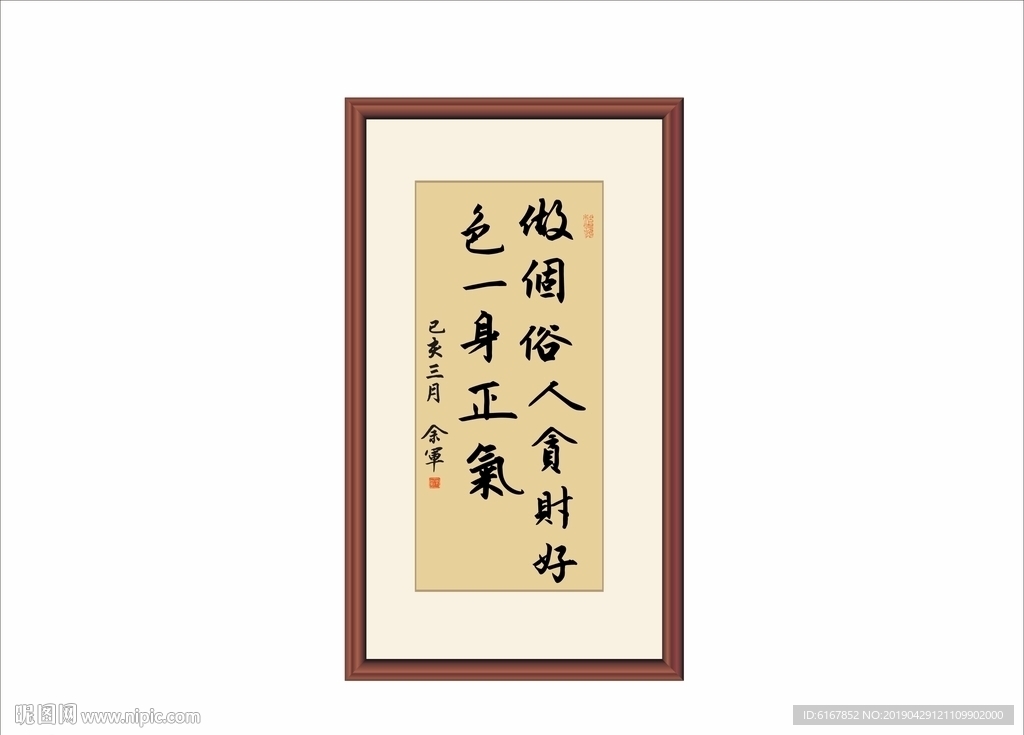 做個俗人貪財好
色一身正氣
己亥三月 余軍
昵图网 www.nipic.com
ID:6167852 NO:20190429121109902000